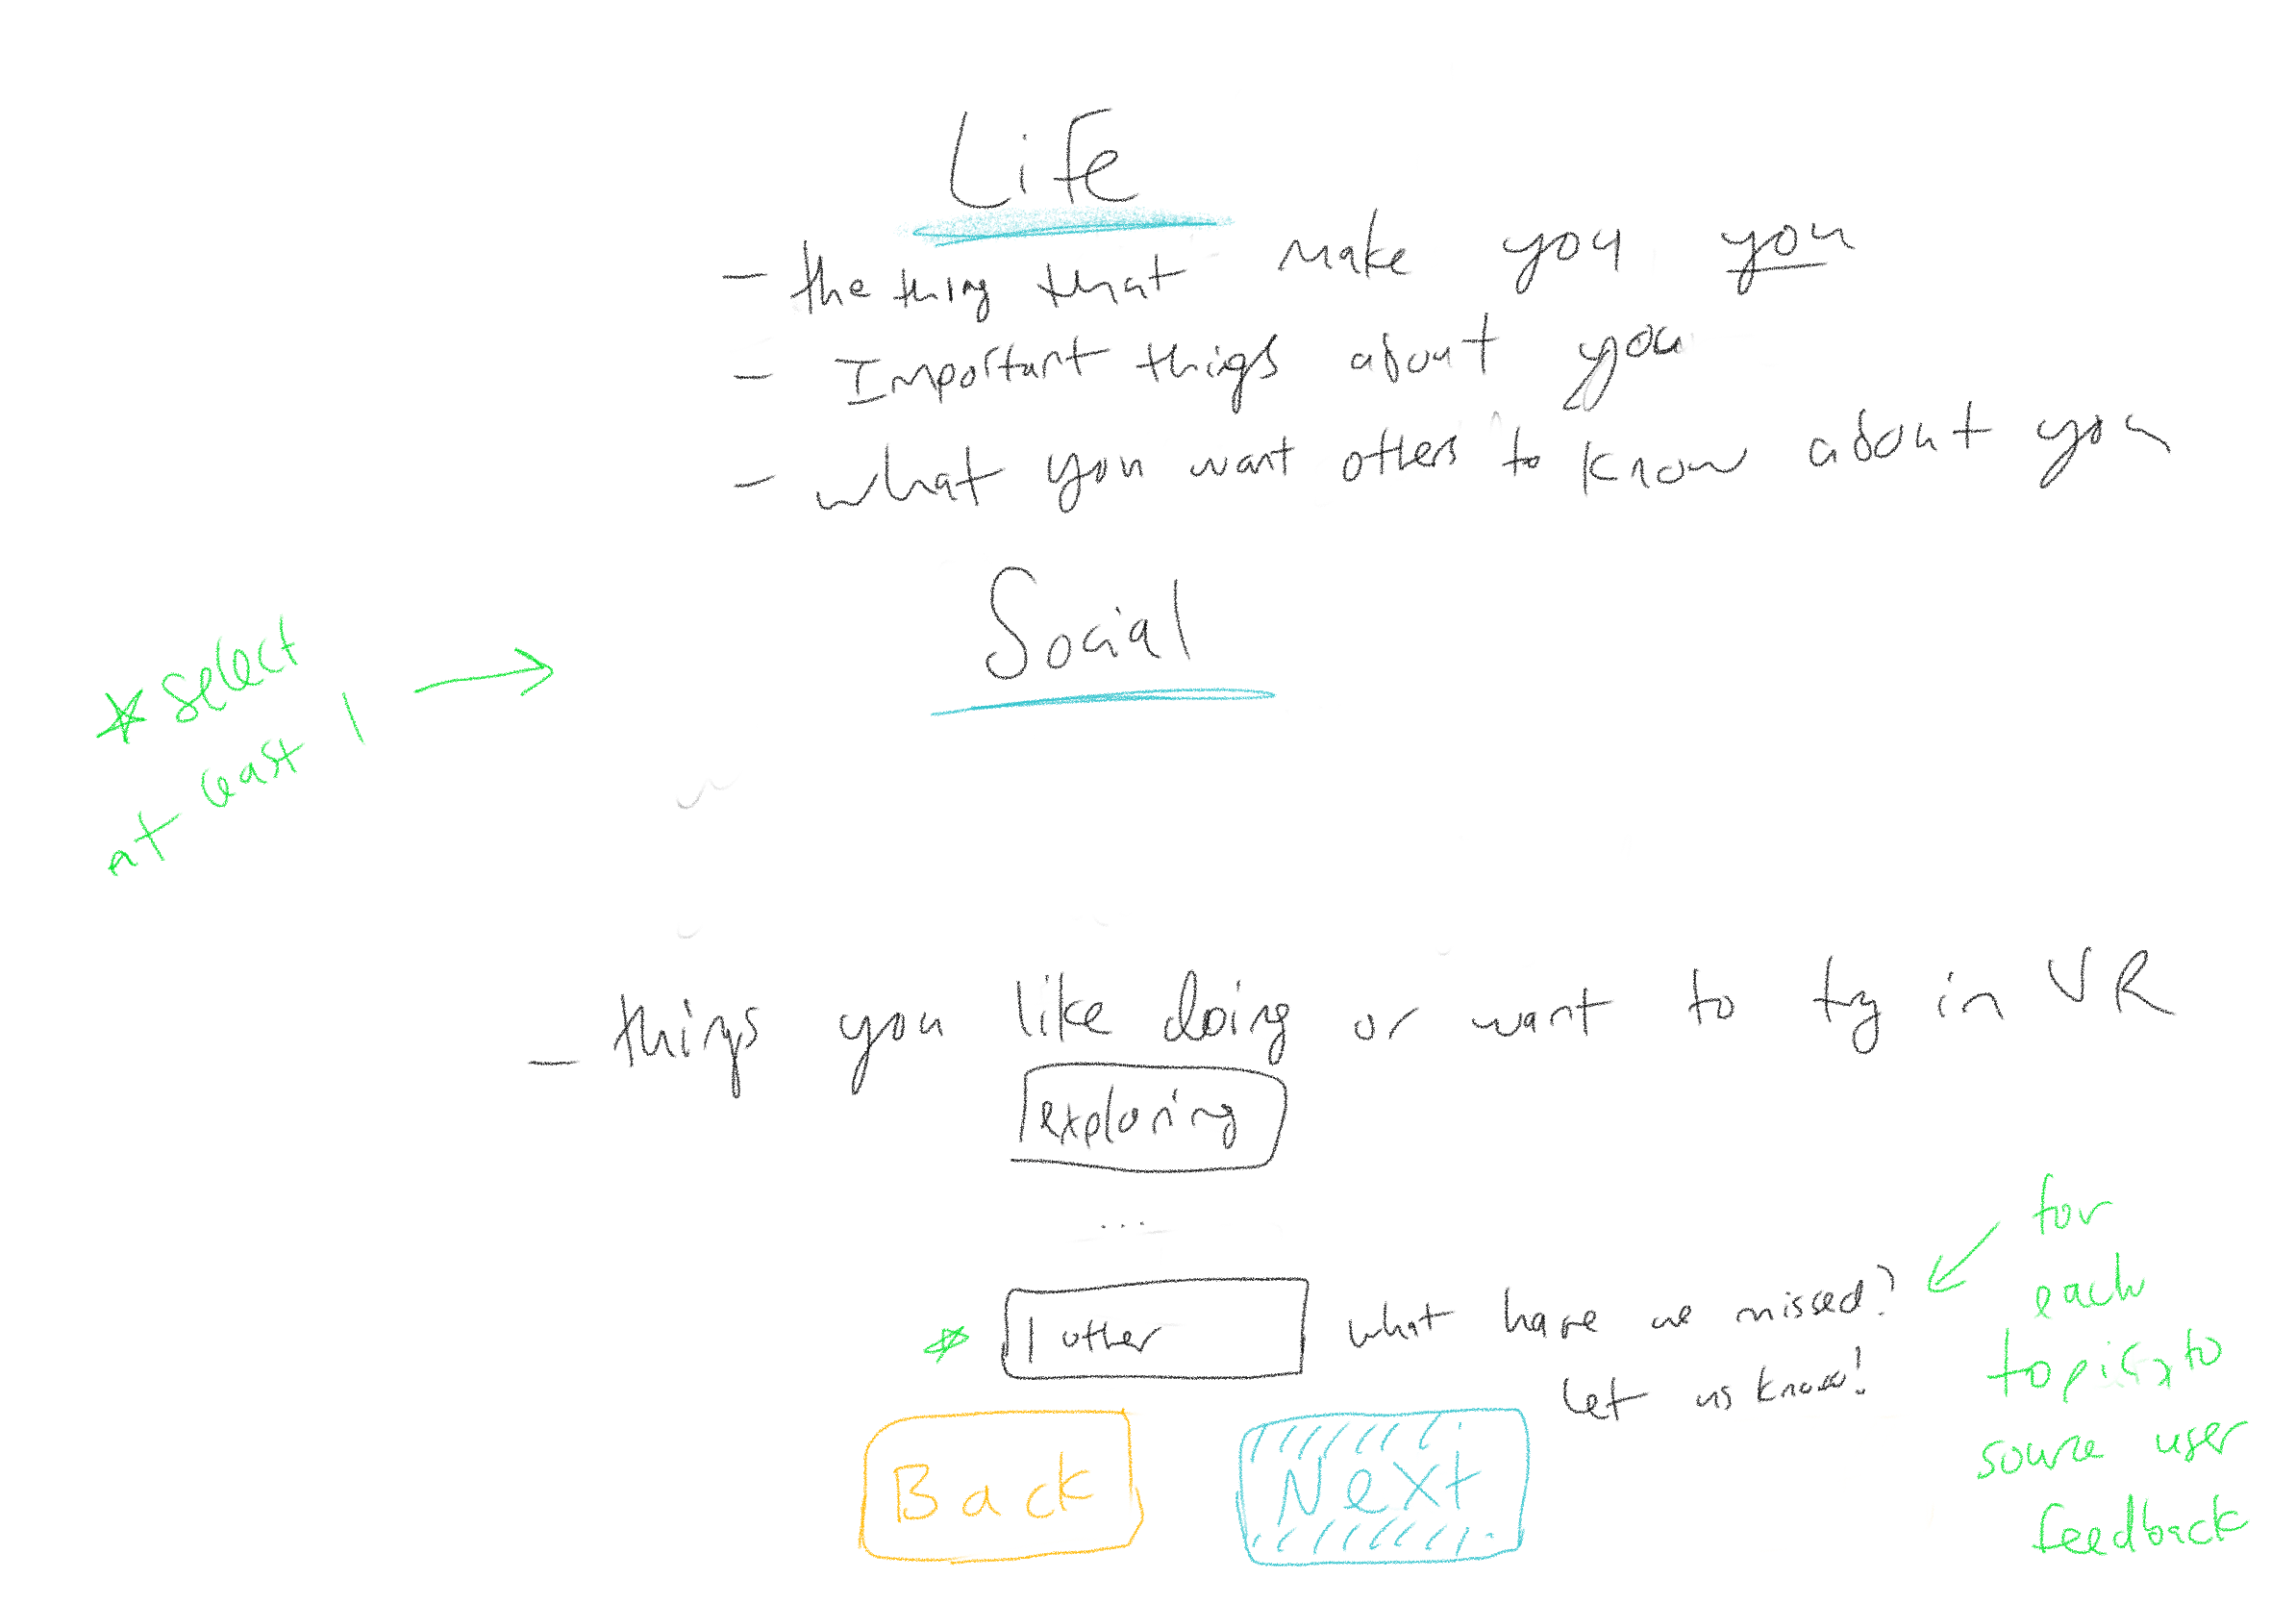 Life
- the thing that make you you
- Important things about you
- what you want others to know about you
Social
* select
at least 1
- things you like doing or want to try in VR
exploring
...
* | other
what have we missed?
let us know!
for
each
topic, to
source user
feedback
Back
Next